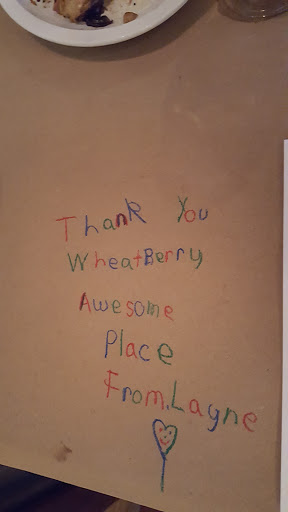 Thank You
WheatBerry
Awesome
Place
From, Layne